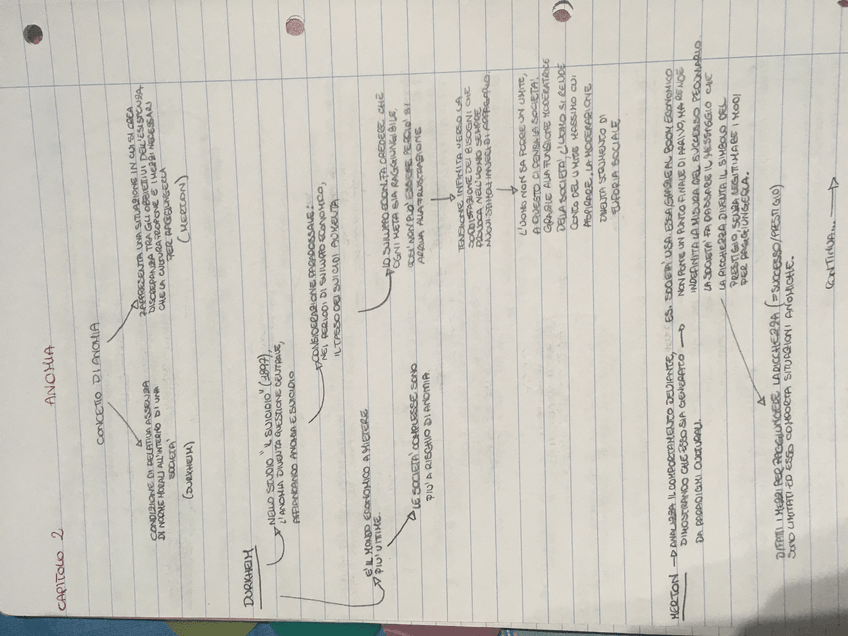 CAPITOLO 2 ANOMIA
CONCETTO DI ANOMIA
CONDIZIONE DI RELATIVA ASSENZA
DI NORME MORALI ALL'INTERNO DI UNA
SOCIETA'
(DURKHEIM)
RAPPRESENTA UNA SITUAZIONE IN CUI SI CREA
DISCREPANZA TRA GLI OBIETTIVI DELL'ESISTENZA,
CHE LA CULTURA PROPONE E I MEZZI NECESSARI
PER RAGGIUNGERLA
(MERTON)
DURKHEIM
NELLO STUDIO "IL SUICIDIO" (1897),
L'ANOMIA DIVENTA QUESTIONE CENTRALE,
AFFIANCANDO ANOMIA E SUICIDIO
CONSIDERAZIONE PARADOSSALE:
NEI PERIODI DI SVILUPPO ECONOMICO,
IL TASSO DEI SUICIDI AUMENTA
E' IL MONDO ECONOMICO A MIETERE
PIU' VITTIME.
LE SOCIETA' COMPLESSE SONO
PIU' A RISCHIO DI ANOMIA
LO SVILUPPO ECON. FA CREDERE CHE
OGNI META SIA RAGGIUNGIBILE.
COSI' NON PUO' ESSERE PERCIO' SI
ARRIVA ALLA FRUSTRAZIONE
TENSIONE INFINITA VERSO LA
SODDISFAZIONE DEI BISOGNI CHE
PROVOCA NELL'UOMO SEMPRE
NUOVI STIMOLI INVECE DI APPAGARLO
L'UOMO NON SA PORRE UN LIMITE,
A QUESTO CI PENSA LA SOCIETA'.
GRAZIE ALLA FUNZIONE MODERATRICE
DELLA SOCIETA', L'UOMO SI RENDE
CONTO DEL LIMITE MASSIMO CUI
ASPIRARE. LA MODERAZIONE
DIVENTA STRUMENTO DI
EUFORIA SOCIALE
MERTON → ANALIZZA IL COMPORTAMENTO DEVIANTE,
DIMOSTRANDO CHE ESSO SIA GENERATO
DA PARADIGMI CULTURALI.
ES. SOCIETA' USA. ESSA, GRAZIE AL BOOM ECONOMICO
NON PONE UN PUNTO FINALE DI ARRIVO, MA RENDE
INDEFINITA LA MISURA DEL SUCCESSO PECUNIARIO.
LA SOCIETA' FA PASSARE IL MESSAGGIO CHE
LA RICCHEZZA DIVENTA IL SIMBOLO DEL
PRESTIGIO, SENZA LEGITTIMARE I MODI
PER RAGGIUNGERLA.
DIFATTI I MEZZI PER RAGGIUNGERE LA RICCHEZZA (=SUCCESSO/PRESTIGIO)
SONO LIMITATI ED ESSO COMPORTA SITUAZIONI ANOMICHE.
CONTINUA...